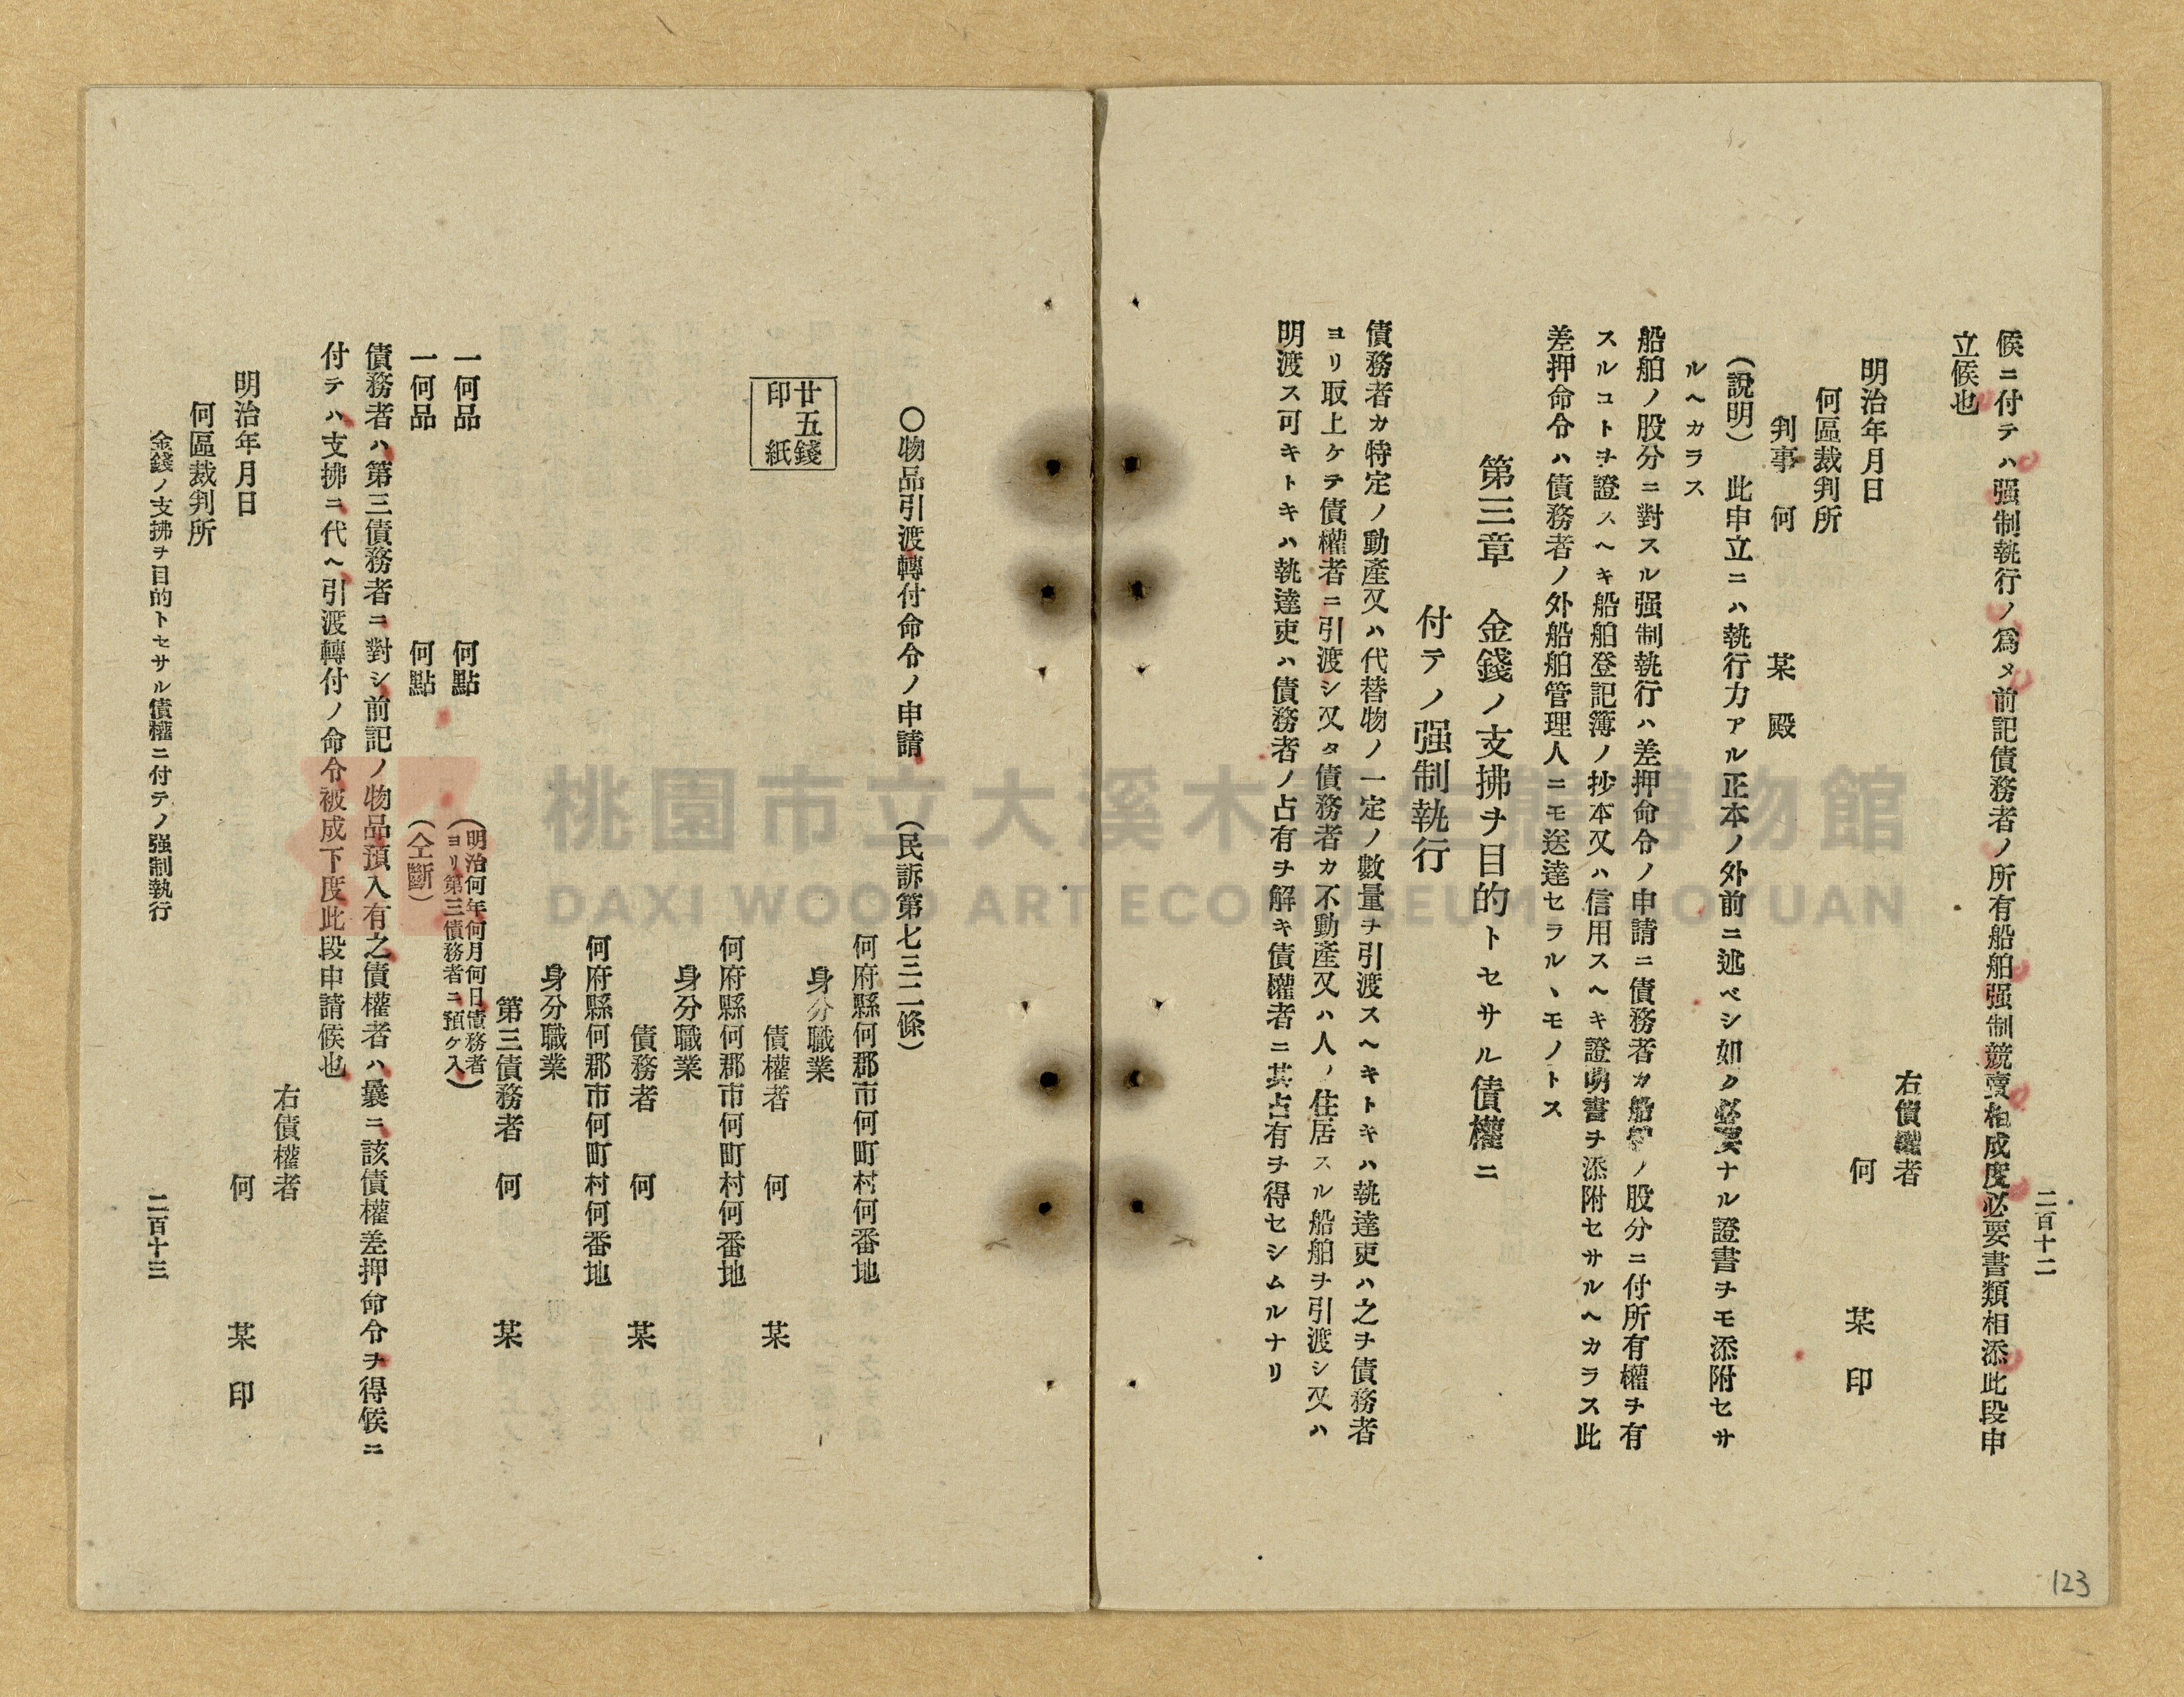 二百十二
候ニ付テハ强制執行ノ爲メ前記債務者ノ所有船舶强制競賣相成度必要書類相添此段申
立候也
右債權者
何 某 印
明治年月日
何區裁判所
判事 何 某 殿
(說明) 此申立ニハ執行力アル正本ノ外前ニ述ベシ如ク必要ナル證書ヲモ添附セサ
ルヘカラス
船舶ノ股分ニ對スル强制執行ハ差押命令ノ申請ニ債務者カ船舶ノ股分ニ付所有權ヲ有
スルコトヲ證スヘキ船舶登記簿ノ抄本又ハ信用スヘキ證明書ヲ添附セサルヘカラス此
差押命令ハ債務者ノ外船舶管理人ニモ送達セラルヽモノトス
第三章 金錢ノ支拂ヲ目的トセサル債權ニ
付テノ强制執行
債務者カ特定ノ動產又ハ代替物ノ一定ノ數量ヲ引渡スヘキトキハ執達吏ハ之ヲ債務者
ヨリ取上ケテ債權者ニ引渡シ又タ債務者カ不動產又ハ人ノ住居スル船舶ヲ引渡シ又ハ
明渡ス可キトキハ執達吏ハ債務者ノ占有ヲ解キ債權者ニ其占有ヲ得セシムルナリ
〇物品引渡轉付命令ノ申請 (民訴第七三二條)
何府縣何郡市何町村何番地
廿五錢
印紙
身分職業
債權者 何 某
何府縣何郡市何町村何番地
身分職業
債務者 何 某
何府縣何郡市何町村何番地
身分職業
第三債務者 何 某
一何品 何點 (明治何年何月何日債務者
ヨリ第三債務者ニ預ケ入)
一何品 何點 (仝斷)
債務者ハ第三債務者ニ對シ前記ノ物品預入有之債權者ハ曩ニ該債權差押命令ヲ得候ニ
付テハ支拂ニ代ヘ引渡轉付ノ命令被成下度此段申請候也
右債權者
何 某 印
明治年月日
何區裁判所
金錢ノ支拂ヲ目的トセサル債權ニ付テノ强制執行 二百十三
123
桃園市立大溪木藝生態博物館
DAXI WOOD ART ECOMUSEUM, TAOYUAN